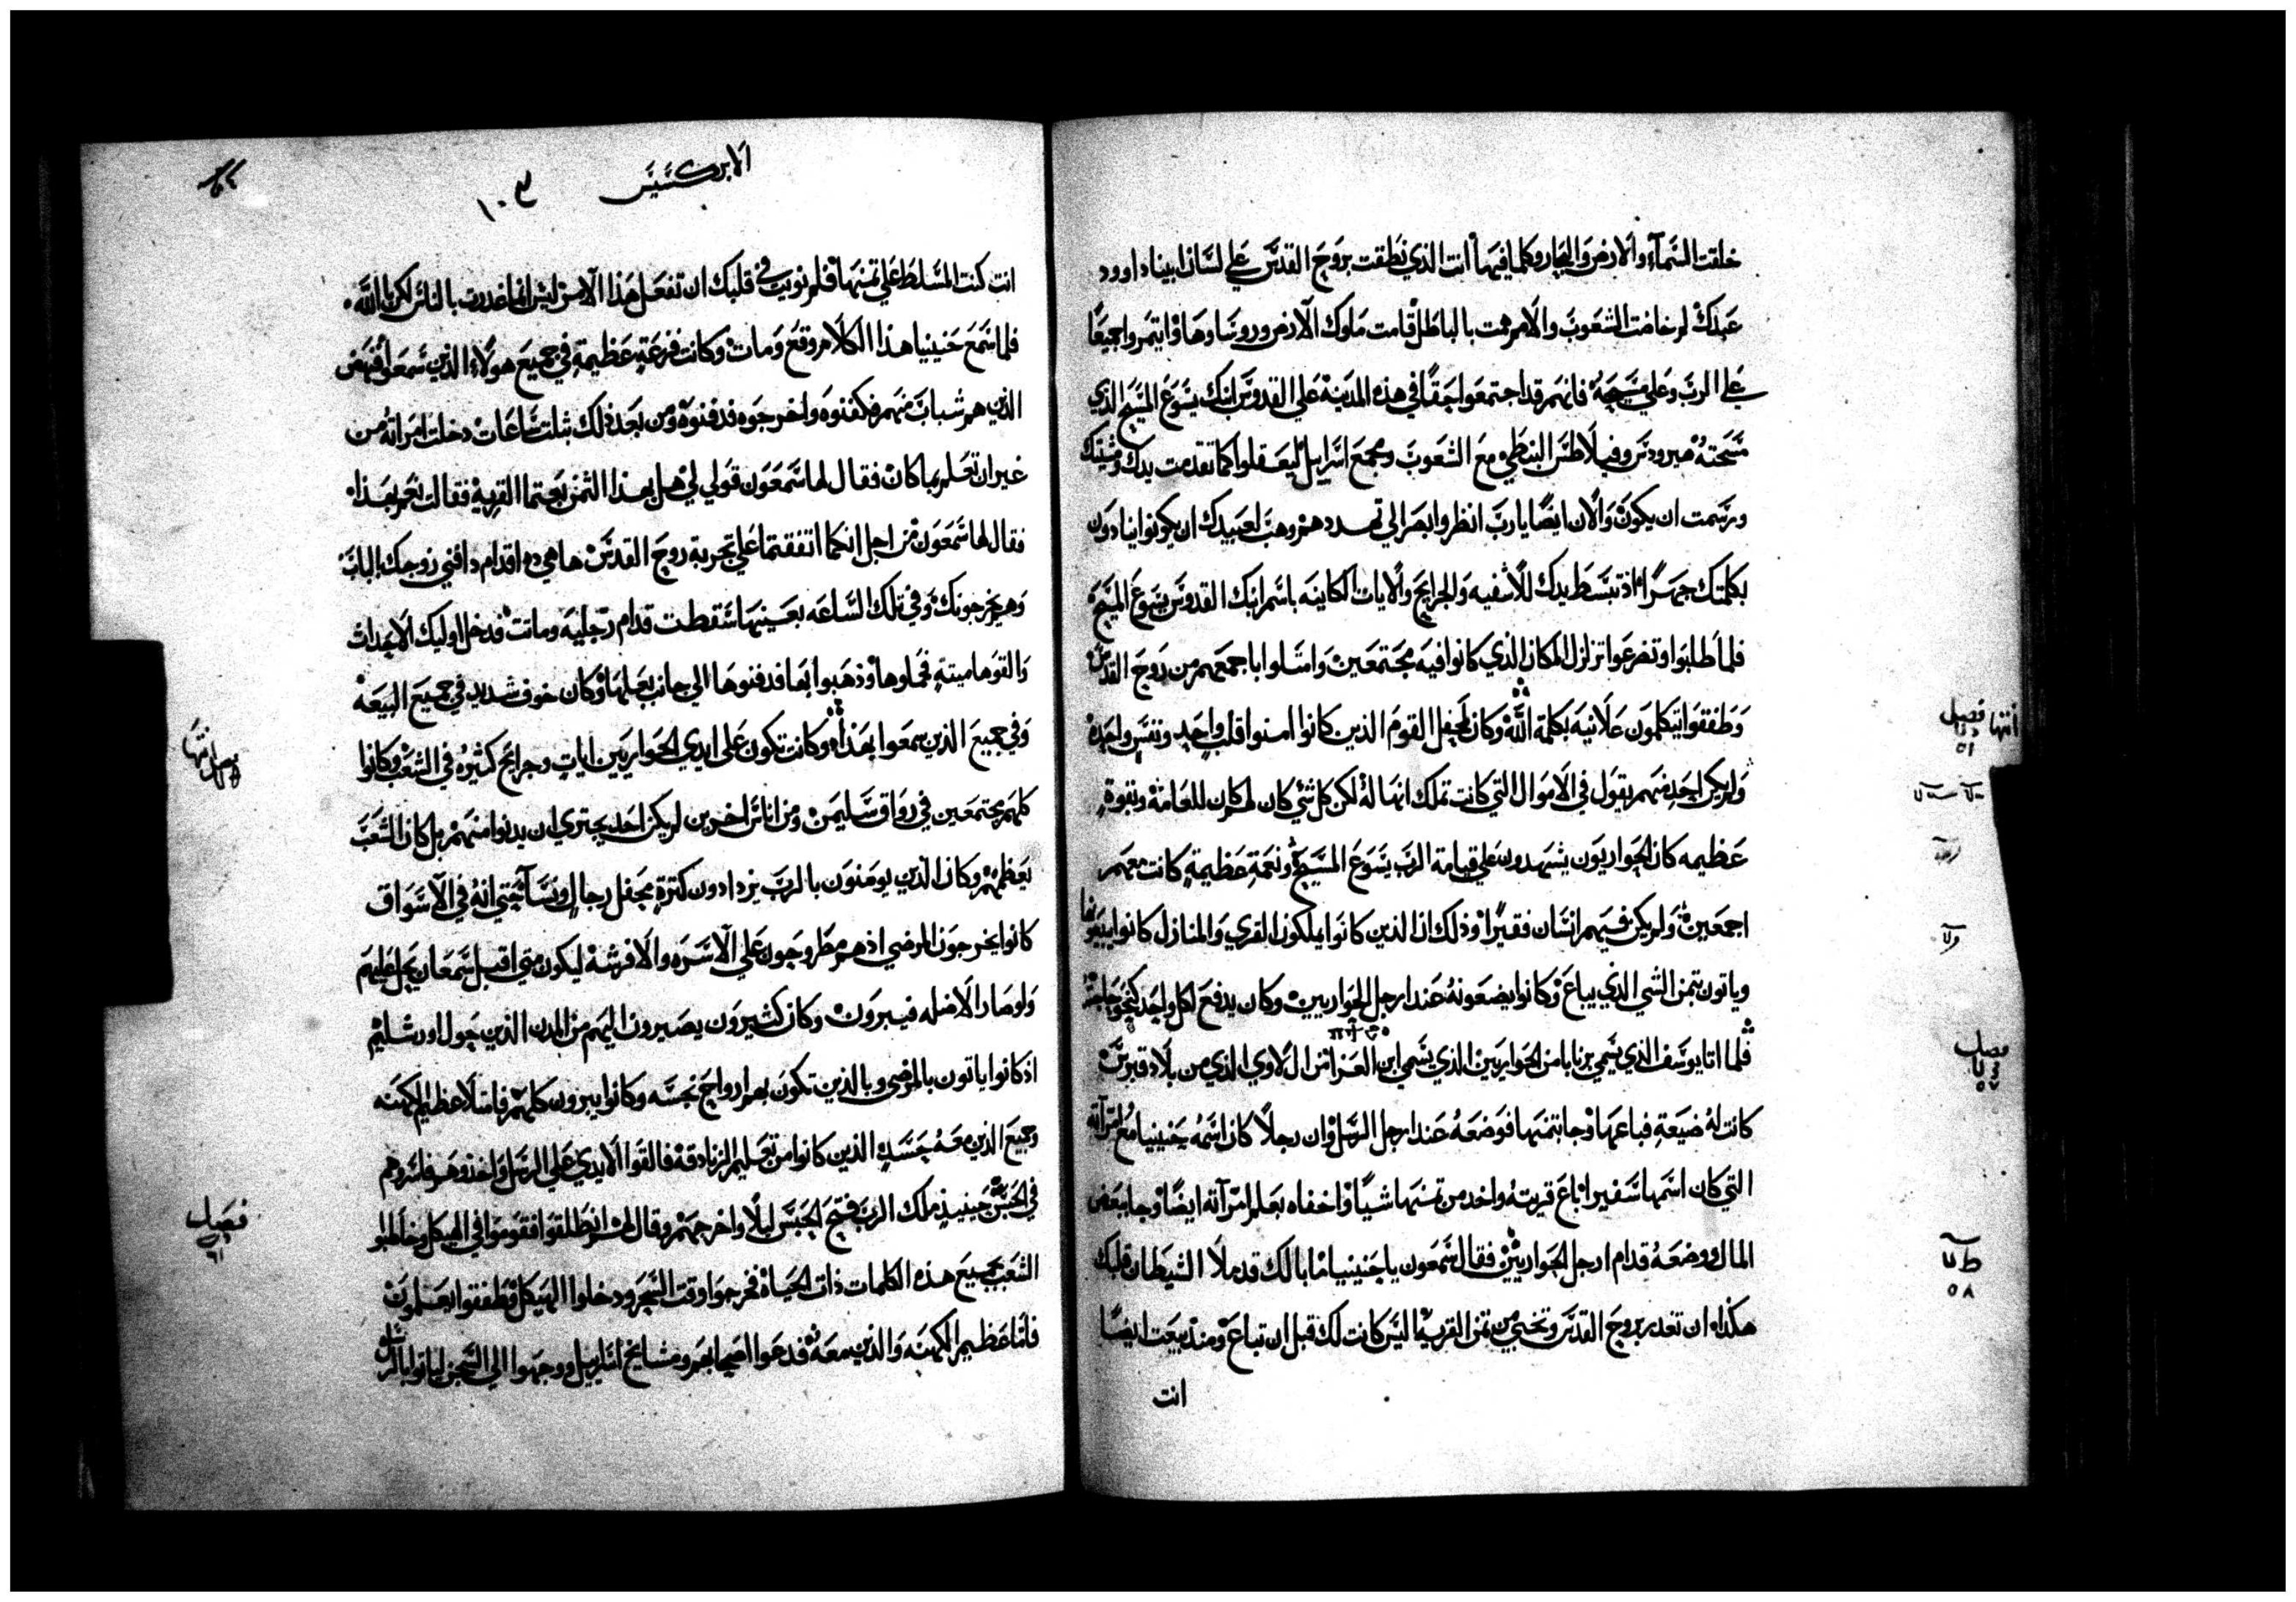 خلقت السمآء والارض والبحار وكلما فيها انت الذي نطقت بروح القدس علي لسان ابينا داوود
عبدك لم خاضت الشعوب والامم همت بالباطل قامت ملوك الارض وروساوها وايتمروا جميعًا
علي الرب وعلي مسيحه فانهم قد اجتمعوا حقًا في هذه المدينة علي القدوس ابنك يسوع المسيح الذي
مسحته هيرودس وفيلاطس النبطي مع الشعوب ومجمع اسرايل ليفعلوا كما تقدمت يدك ومشيتك
ورسمت ان يكون والان ايضًا يارب انظر وابصر الي تهددهم وهب لعبيدك ان يكونوا ينادون
بكلمتك جهرًا اذ تبسط يدك للاشفيه والجرايح والايات الكاينه باسم ابنك القدوس يسوع المسيح
فلما طلبوا وتضرعوا تزلزل المكان الذي كانوا فيه مجتمعين وامتلوا باجمعهم من روح القدس
وطفقوا يتكلمون علانيه بكلمة الله وكان لمحفل القوم الذين كانوا امنوا قلب واحد ونفس واحده
ولم يكن احد منهم يقول في الاموال التي كانت تملك انها له لكن كل شي كان لهم كان للعامة وبقوة
عظيمه كان الحواريون يشهدون علي قيامة الرب يسوع المسيح ونعمة عظيمة كانت معهم
اجمعين ولم يكن فيهم انسان فقيرًا وذلك ان الذين كانوا يملكون القري والمنازل كانوا يبيعونها
وياتون بثمن الشي الذي يباع وكانوا يضعونه عند ارجل الحواريين وكان يدفع لكل واحد كنحو حاجته
فلما اتا يوسف الذي يسمي برنابا من الحواريين الذي يسمي ابن العزا من ال لاوي الذي من بلاد قبرس
كانت له ضيعة فباعها وجا بثمنها فوضعه عند ارجل الرسل وان رجلاً كان اسمه حنينيا مع امرآته
التي كان اسمها سفيرا باع قريته واخد من ثمنها شيًا واخفاه بعلم امرآته ايضًا وجا ببعض
المال ووضعه قدام ارجل الحواريين فقال شمعون يا حنينيا ما بالك قد ملا الشيطان قلبك
هكذا ان تغدر بروح القدس وتخبي من ثمن القرية اليس كانت لك قبل ان تباع ومنذ بيعت ايضًا
انت
انتها
فصل
٥١
فصل
٥٧
٥٨
الابركسيس
١٠٣
انت كنت المسلط علي ثمنها فلم نويت في قلبك ان تفعل هذا الامر ليس انما غدرت بالناس لكن بالله
فلما سمع حنينيا هذا الكلام وقع ومات وكانت فزعة عظيمة في جميع هولاء الذين سمعوا فنهض
الذين هم شباب منهم فكفنوه واخرجوه فدفنوه ومن بعد ذلك بثلت ساعات دخلت امراته من
غير ان تعلم بما كان فقال لها شمعون قولي لي هل بهذا الثمن بعتما القرية فقالت نعم بهذا
فقال لها شمعون من اجل انكما اتفقتما علي تجربة روح القدس ها هي ده اقدام دافني زوجك بالباب
وهم يخرجونك وفي تلك الساعه بعينها سقطت قدام رجليه وماتت فدخل اوليك الاحداث
والقوها ميتة فحملوها وذهبوا بها فدفنوها الي جانب بعلها وكان خوف شديد في جميع البيعه
وفي جميع الذين سمعوا بهذا وكانت تكون علي ايدي الحواريين ايات وجرائح كثيره في الشعب وكانوا
كلهم مجتمعين في رواق سليمن ومن اناس اخرين لم يكن احد يجتري ان يدنوا منهم بل كان الشعب
يعظمهم وكان الذين يومنون بالرب يزدادون كثرة محفل رجال ونسآ حتي انه في الاسواق
كانوا يخرجون المرضي اذ هم مطروحون علي الاسره والافرشة ليكون متي اقبل شمعان يحل عليهم
ولو صار الاضله فيبرون وكان كثيرون يصيرون اليهم من المدن الذين حول اورشليم
اذ كانوا ياتون بالمرضي وبالذين تكون بهم ارواح نجسه وكانوا يبرون كلهم فامتلا عظيم الكهنه
وجميع الذين معه حسدٍ الذين كانوا من تعليم الزنادقة فالقوا الايدي علي الرسل واخذوهم فاسروهم
في الحبس حينيذ ملك الرب فتح الحبس ليلًا واخرجهم وقال لهم انطلقوا فقوموا في الهيكل وخاطبوا
الشعب بجميع هذه الكلمات ذات الحياة فخرجوا وقت السحر ودخلوا الهيكل وطفقوا يعلمون
فاتا عظيم الكهنه والذين معه فدعوا اصحابهم ومشايخ اسرايل ووجهوا الي السجن لياتوا بالرسل
فصل
٦١